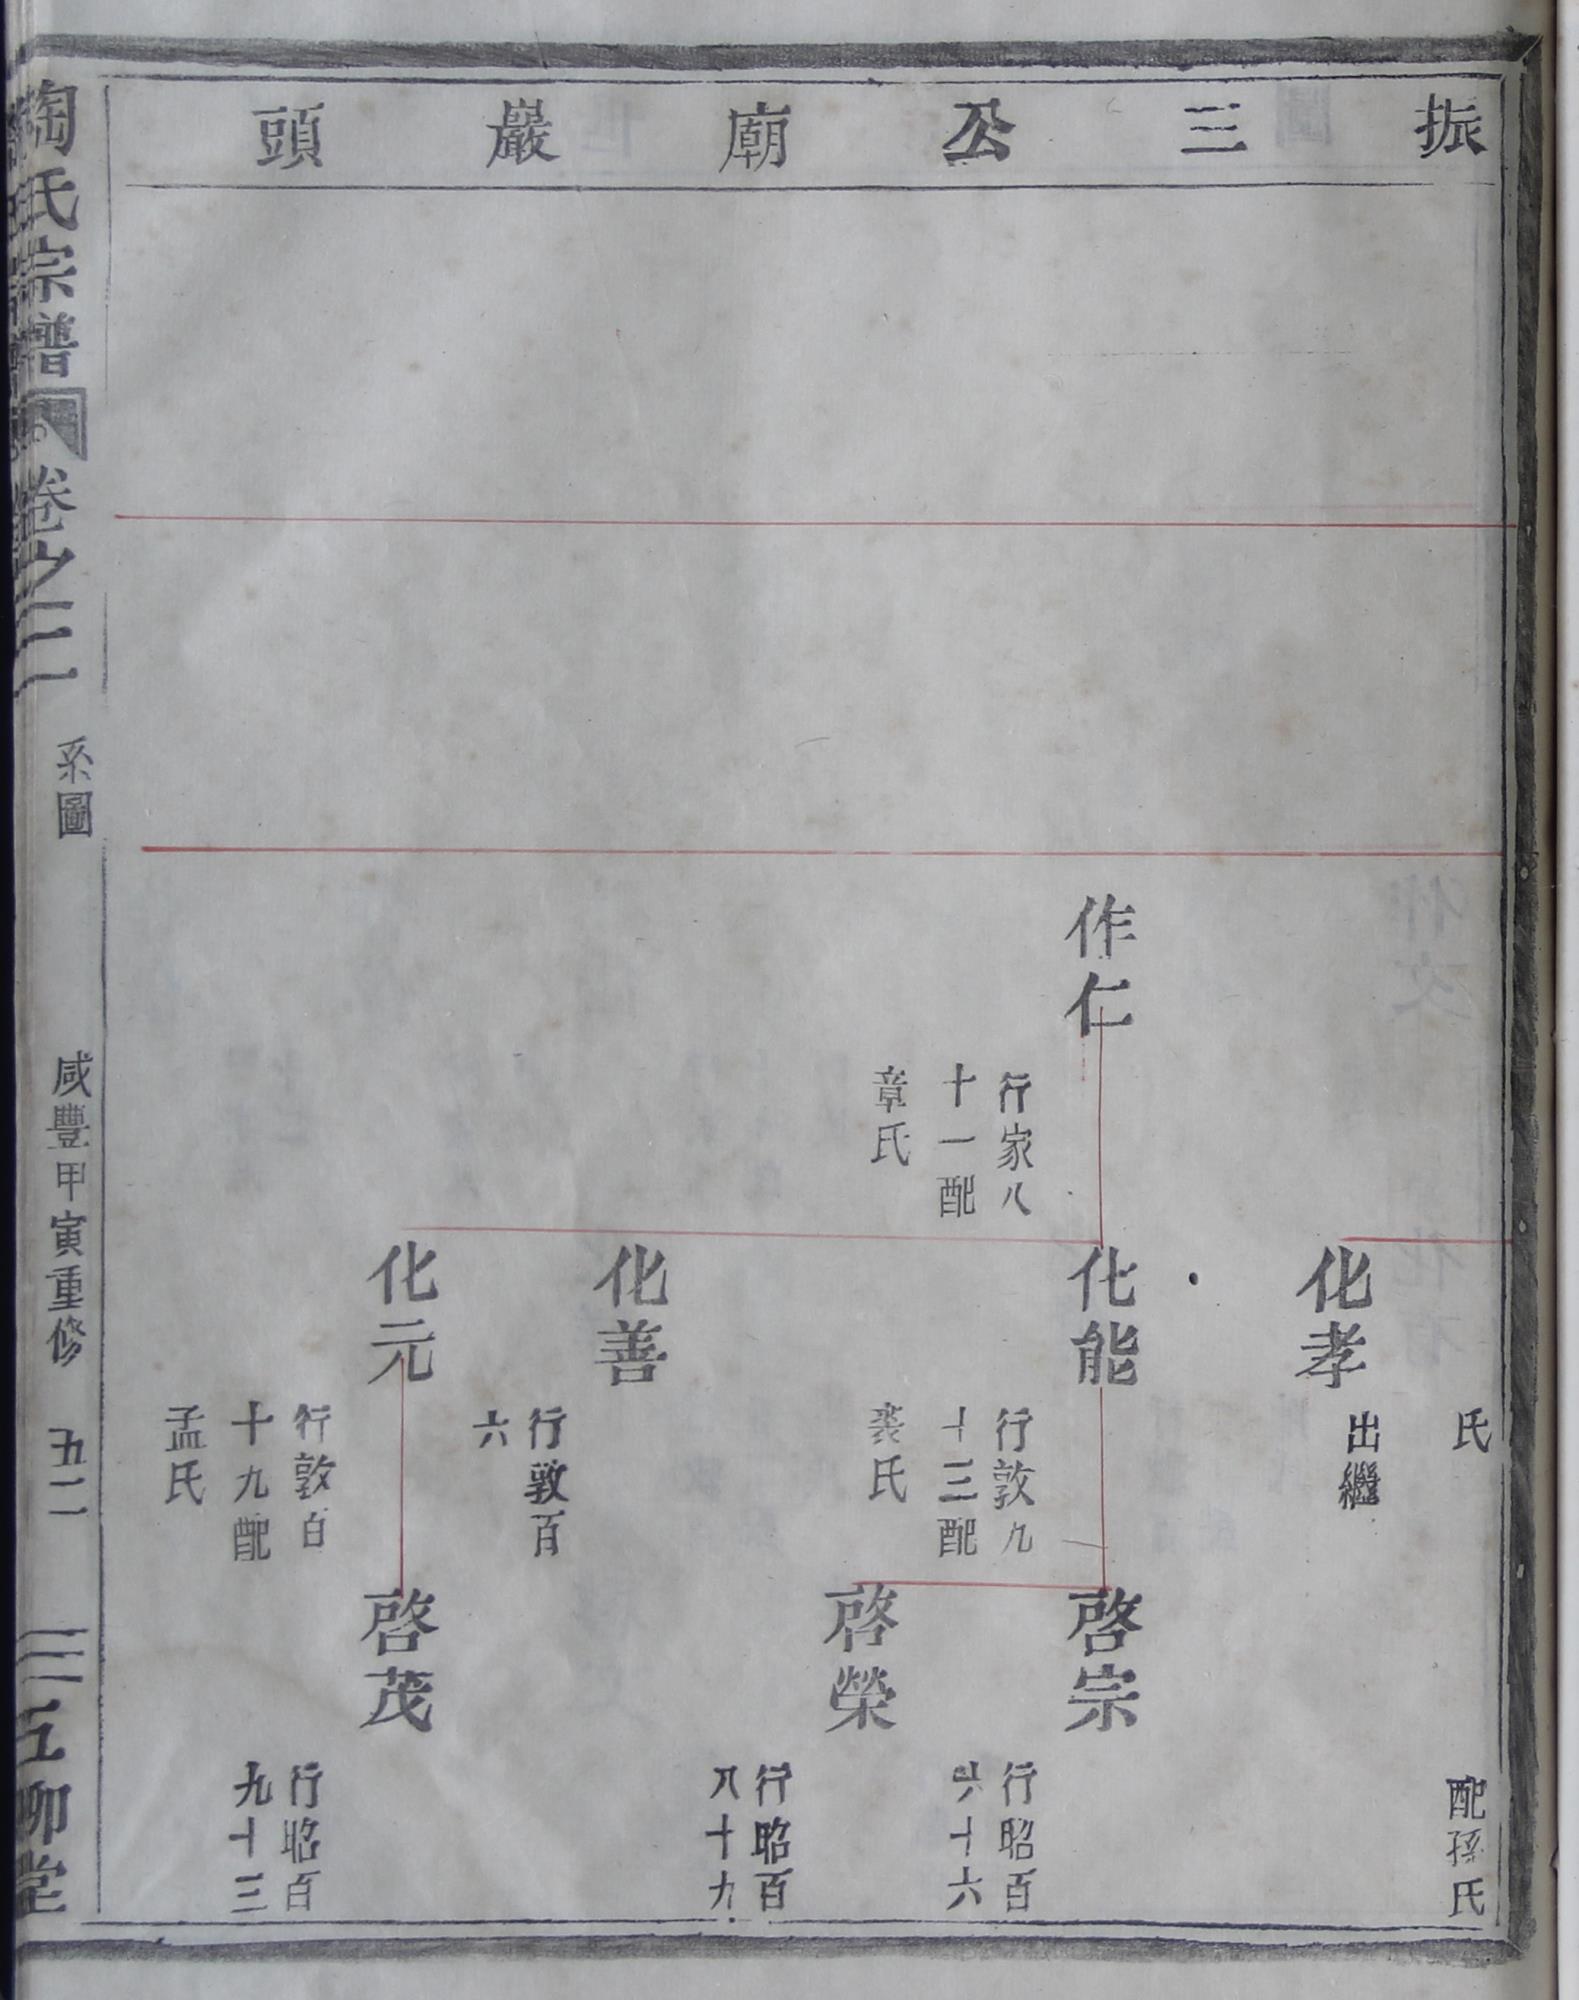 振三公廟巖頭
氏
配孫氏
化孝
出繼
作仁
行家八
十一配
章氏
化能
行敦九
十三配
裘氏
啓宗
行昭百
六十六
啓榮
行昭百
八十九
化善
行敦百
六
化元
行敦百
十九配
孟氏
啓茂
行昭百
九十三
陶氏宗譜
卷之二
系圖
咸豐甲寅重修
五二
五柳堂